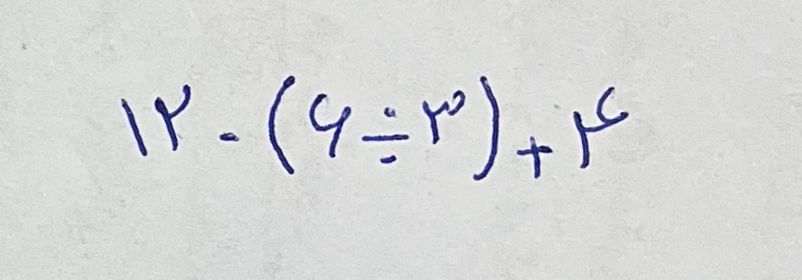 ۱۲ - (۶ ÷ ۳) + ۴